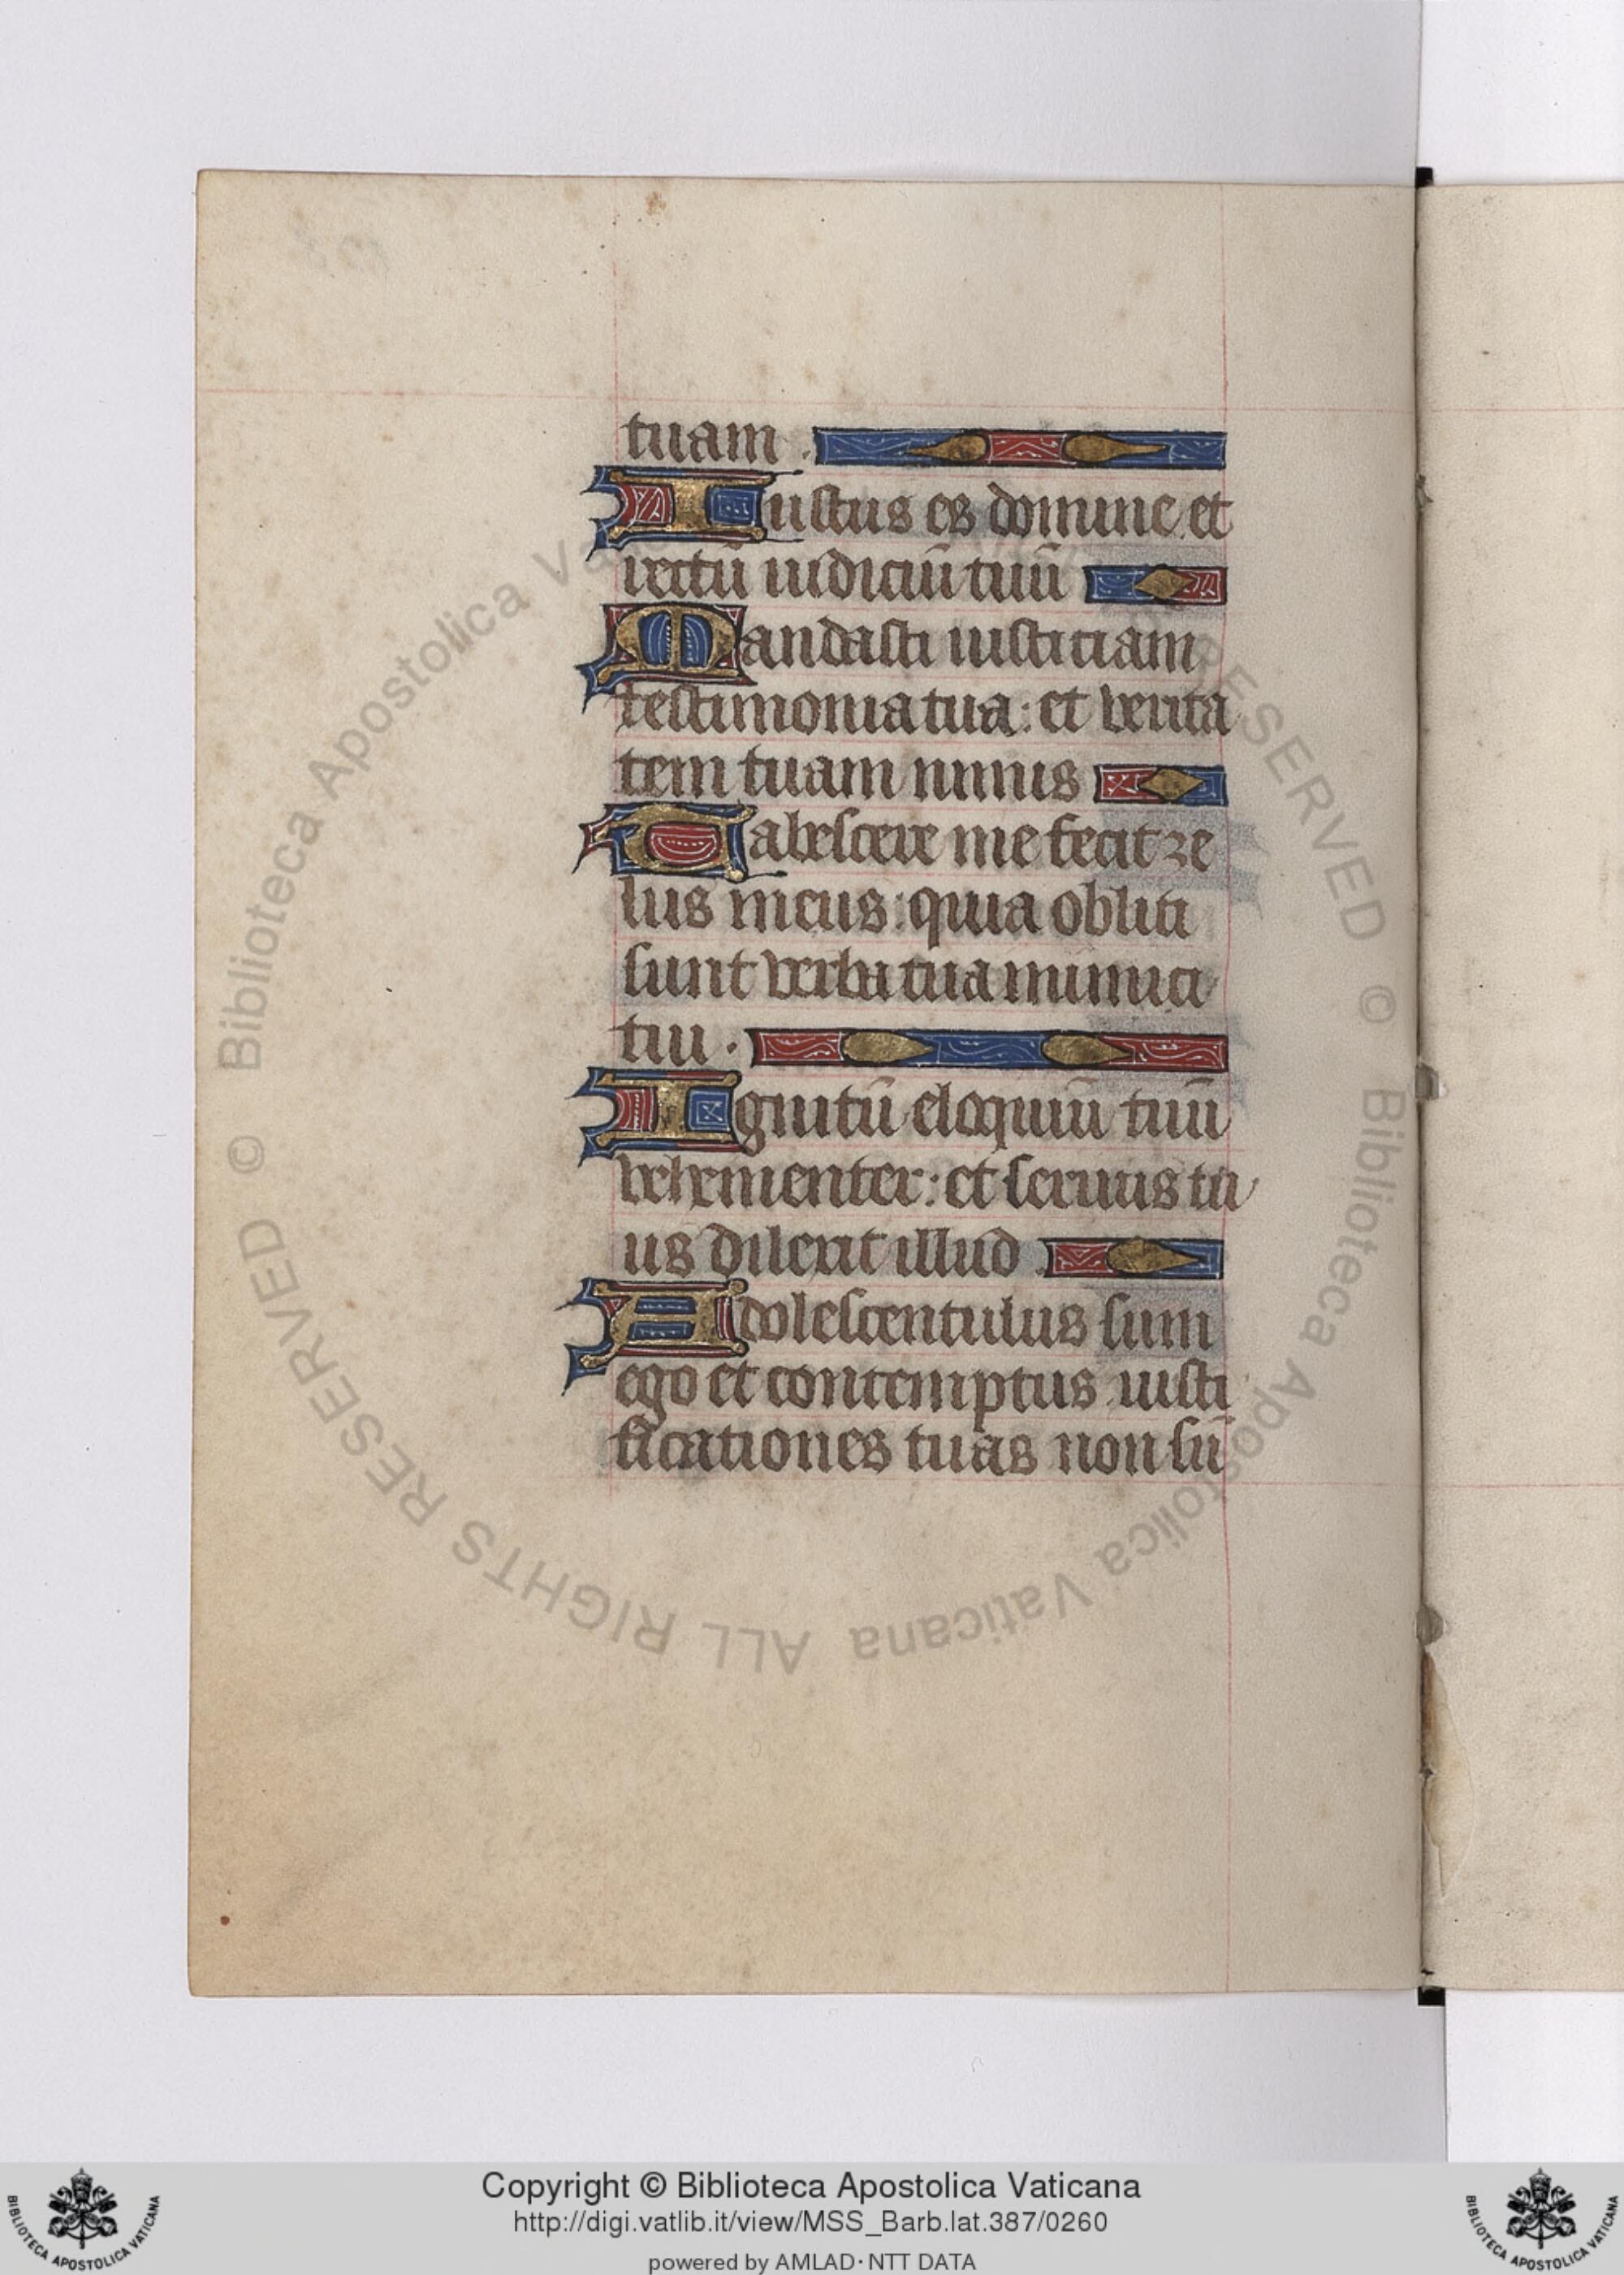 tuam .
Iustus es domine et
rectū iudiciū tuū
Mandasti iusticiam
testimonia tua : et verita
tem tuam nimis
Tabescere me fecit ze
lus meus : quia obliti
sunt verba tua inimici
tui .
Ignitū eloquiū tuū
vehementer : et seruus tu
us dilexit illud .
Adolescentulus sum
ego et contemptus iusti
ficationes tuas non sū
© Biblioteca Apostolica Vaticana ALL RIGHTS RESERVED
© Biblioteca Apostolica Vaticana ALL RIGHTS RESERVED
Copyright © Biblioteca Apostolica Vaticana
http://digi.vatlib.it/view/MSS_Barb.lat.387/0260
powered by AMLAD·NTT DATA
BIBLIOTECA APOSTOLICA VATICANA
BIBLIOTECA APOSTOLICA VATICANA